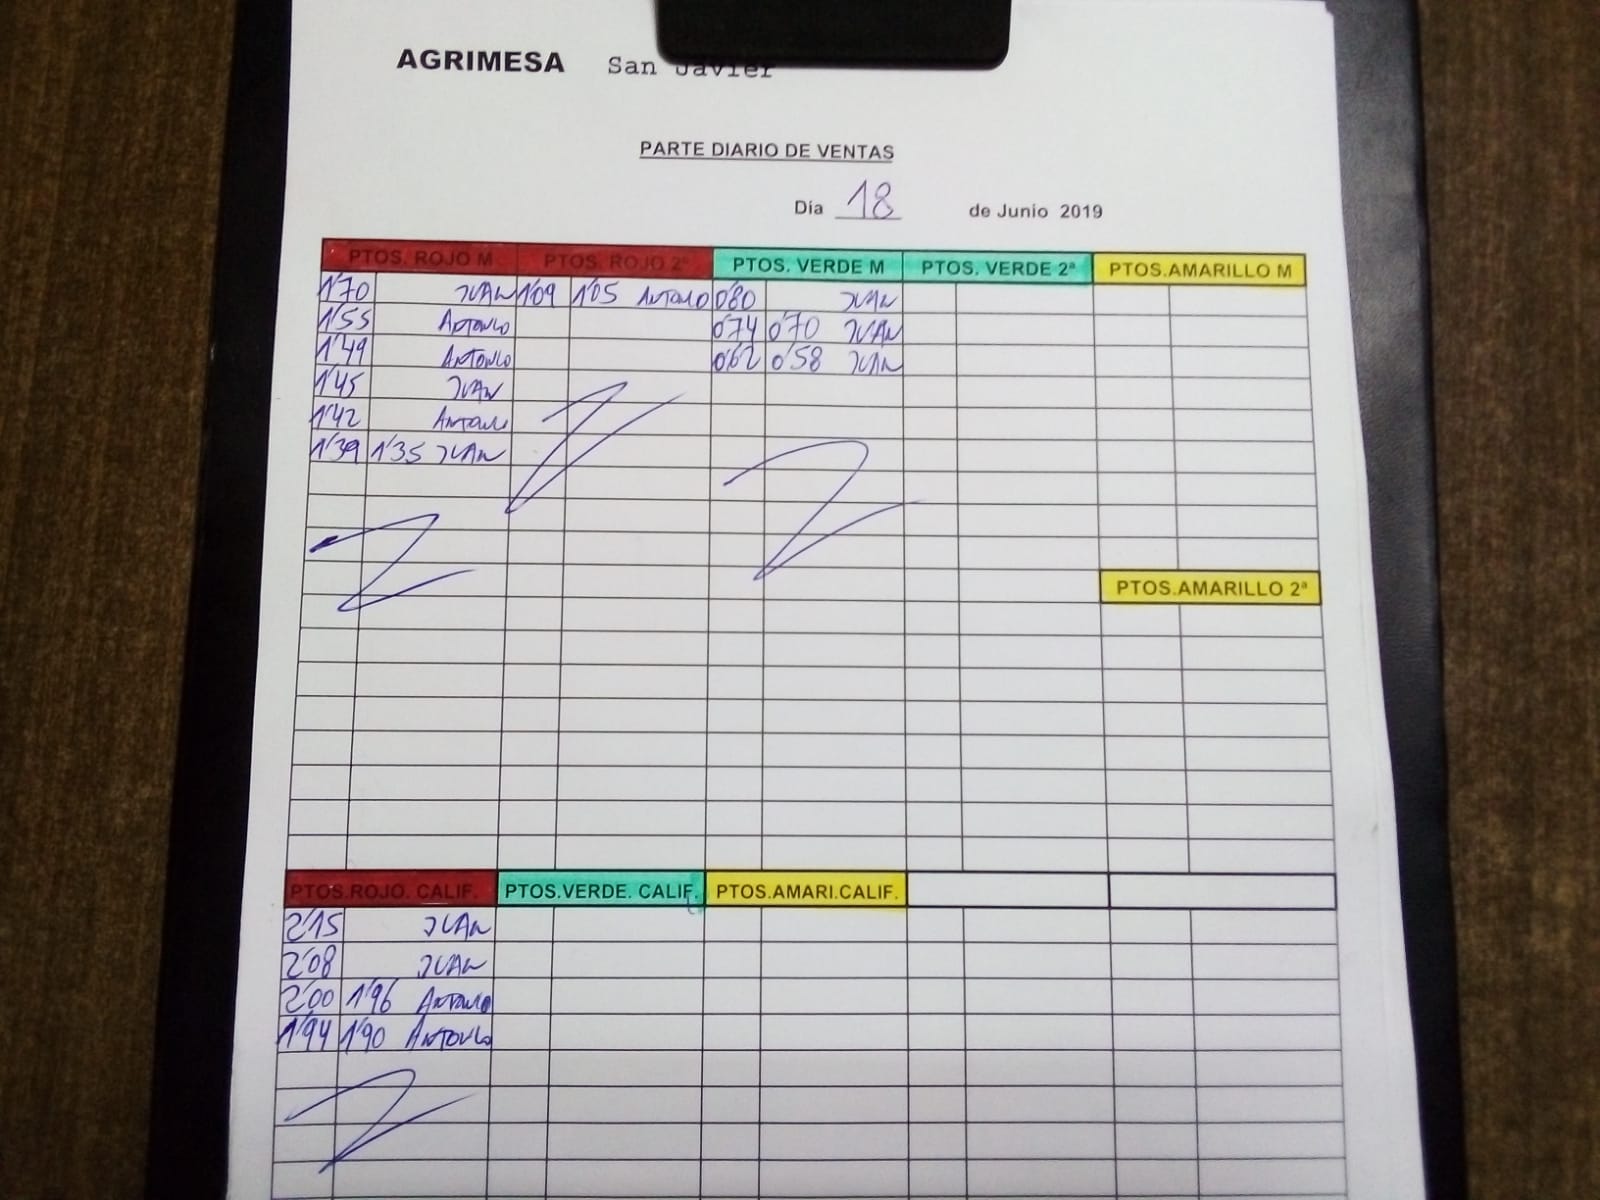 AGRIMESA San Javier
PARTE DIARIO DE VENTAS
Día 18 de Junio 2019
PTOS. ROJO M PTOS. ROJO 2ª PTOS. VERDE M PTOS. VERDE 2ª PTOS.AMARILLO M
1'70 JUAN 1'09 1'05 ANTONIO 0'80 JUAN
1'55 ANTONIO 0'74 0'70 JUAN
1'49 ANTONIO 0'62 0'58 JUAN
1'45 JUAN
1'42 ANTONIO
1'39 1'35 JUAN
PTOS.AMARILLO 2ª
PTOS.ROJO. CALIF. PTOS.VERDE. CALIF. PTOS.AMARI.CALIF.
2'15 JUAN
2'08 JUAN
2'00 1'96 ANTONIO
1'94 1'90 ANTONIO